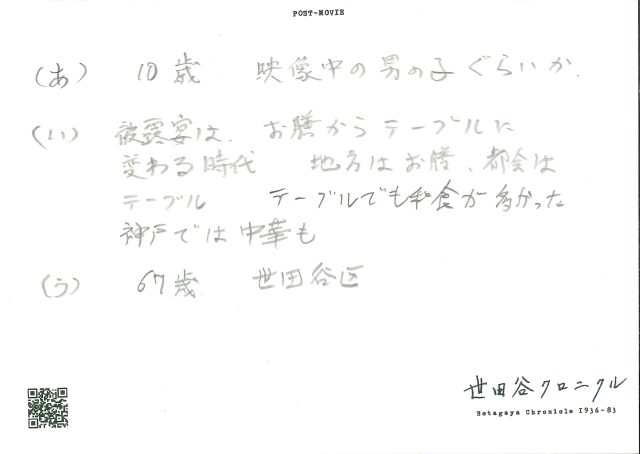 POST-MOVIE
(あ) 10歳 映像中の男の子ぐらいか.
(い) 被露宴は、お膳からテーブルに
変わる時代 地方はお膳、都会は
テーブル テーブルでも和食が多かった
神戸では中華も
(う) 67歳. 世田谷区
世田谷クロニクル
Setagaya Chronicle 1936-83